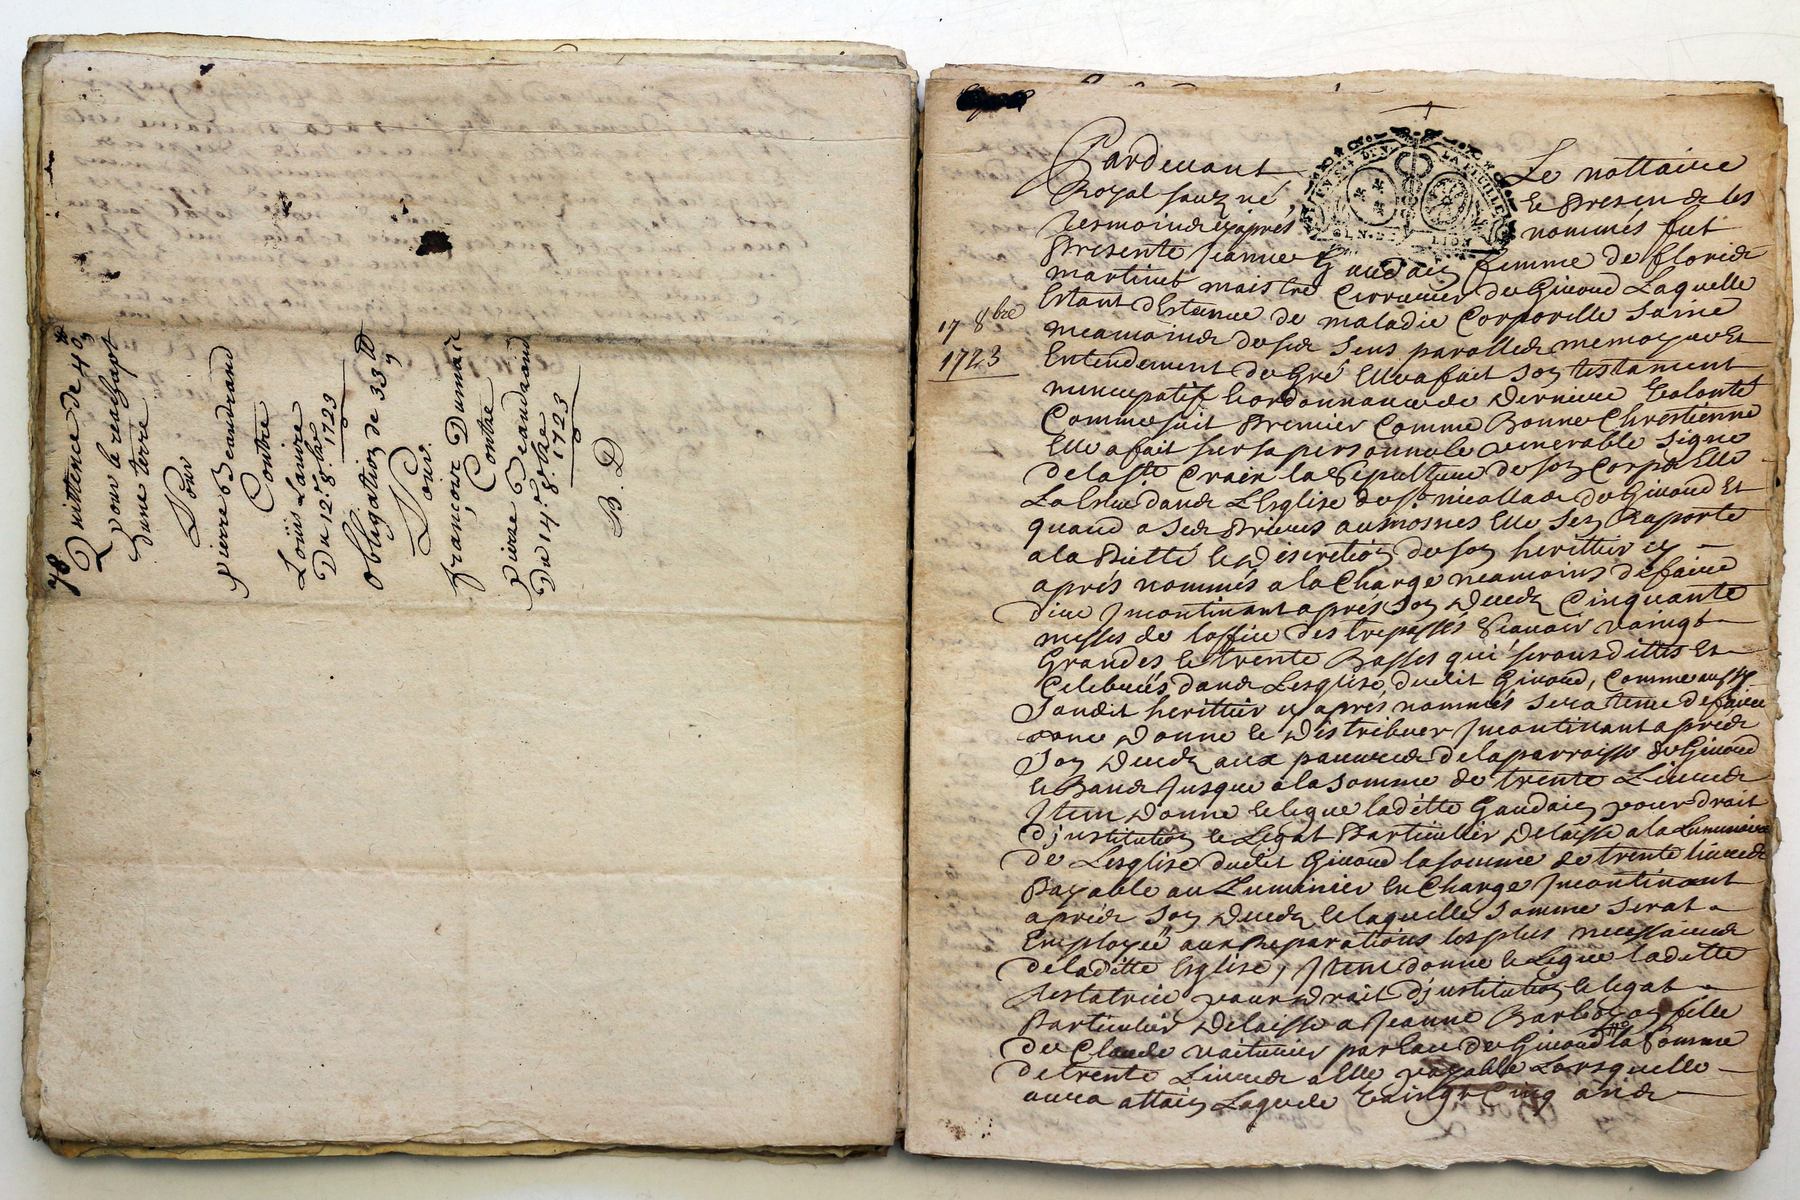 78
Quittence de 40
pour le reachapt
dune terre
Pour
Pierre Beaudrand
Contre
Louis Lavire
Du 12.e 8.bre 1723
Obligation de 33 lt
Pour
françois Dumair
Contre
Pierre Beaudrand
Du 14.e 8.bre 1723
B. D
GEN. D LION
17 8bre
1723
Pardevant Le nottaire
Royal souzné, & Presen de les
tesmoins exaprés nommés fut
Presente Jeanne Gaudain femme de floris
martinet maistre de Givord Laquelle
Estant destenue de maladie Corporelle saine
neamoins de ses sens parolles memoyre Et
Entendement de Gré Elle a fait son testament
nuncupatif & ordonnance de Derniere Volonté
Comme suit Premier Comme Bonne Chrestienne
Elle a fait sur sa personne le venerable signe
de la ste Croix la Sepulture de son Corps Elle
La Eslue dans L'Esglise de st nicollas de Givord Et
quand a ses Prieres aumosnes Elle sen Raporte
a la Pietté & Discretion de son herittier cy
aprés nommés a la Charge neamoins de faire
dire Jncontinant aprés son Deceds Cinquante
messes de loffice des trepassés Scavoir vaingt
Grandes & trente Basses qui seront dittes Et
Celebreés dans Lesglise dudit Givord, Comme aussy
Sondit herittier cy aprés nommés sera tenu de faire
Donne & Distribuer Jncontinant apres
Son Deceds aux pauvres de la parroisse de Givord
& Bans Jusque a la somme de trente Livres
Jtem Donne & legue laditte Gaudain pour droit
d'jnstitution & Legat Particulier Delaisse a la Luminaire
de Lesglise dudit Givord la somme de trente livres
Payable au Luminier En Charge Jncontinant
aprés Son Deceds & laquelle Somme serat
Employeé aux Reparations les plus necessaires
de laditte Esglise, Jtem donne & Legue laditte
testatrice pour Droit d'jnstitution & legat
Particulier Delaisse a Jeanne fille
de Claude voiturier par Eau de Givord la Somme
de trente Livres a Elle payable Lorsquelle
aura attain Laguede Vaingt Cinq ans